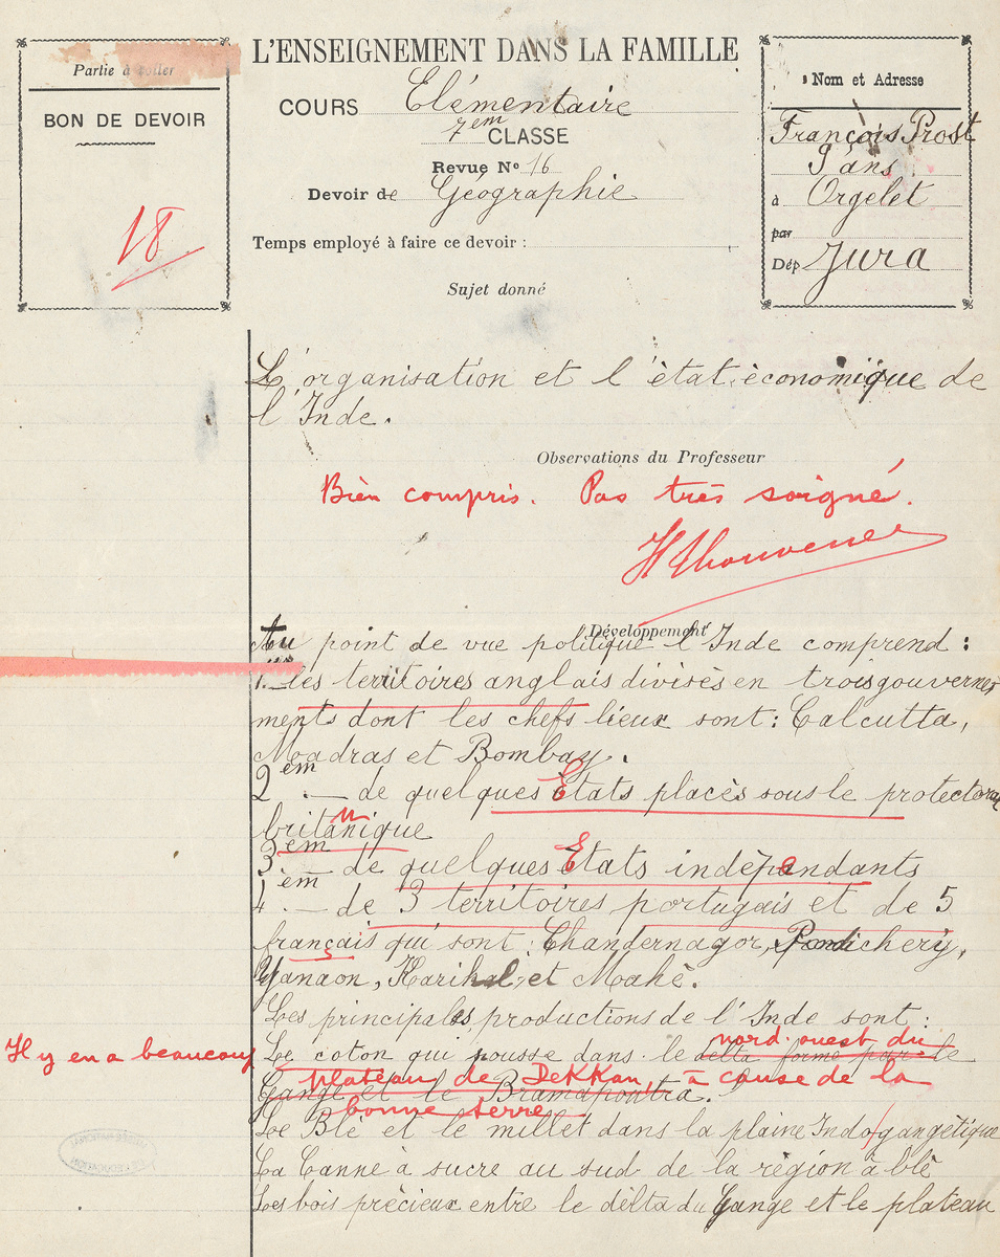 L'ENSEIGNEMENT DANS LA FAMILLE
Partie à coller
BON DE DEVOIR
18
COURS Elémentaire
7em CLASSE
Revue No 16
Devoir de Géographie
Temps employé à faire ce devoir :
Sujet donné
Nom et Adresse
François Prost
9 ans
à Orgelet
par
Dép Jura
L'organisation et l'ètat èconomique de
l'Inde.
Observations du Professeur
Bien compris. Pas très soigné.
Développement
Au point de vue politique l'Inde comprend :
1. — les territoires anglais divisès en trois gouverne
ments dont les chefs lieux sont : Calcutta,
Madras et Bombay.
2em. — de quelques États placès sous le protectorat
britannique
3em — de quelques États indèpendants
4em. — de 3 territoires portugais et de 5
français qui sont : Chandernagor, Pondichery,
Yanaon, Karikal, et Mahè.
Les principales productions de l'Inde sont :
Il y en a beaucoup
Le coton qui pousse dans le delta forme par le
nord ouest du
Gange et le Bramapoutra.
plateau de Dekkan, à cause de la
bonne terre
Le Blè et le millet dans la plaine Indo-gangètique
La Canne à sucre au sud de la règion à blè
Les bois prècieux entre le dèlta du Gange et le plateau